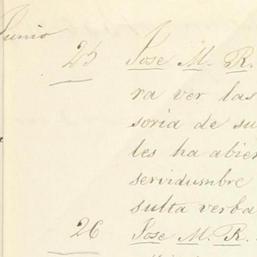 Junio
25 Jose M. R.
ra ver las
soria de su
les ha abier
servidumbre
sulta verba
26 Jose M. R.